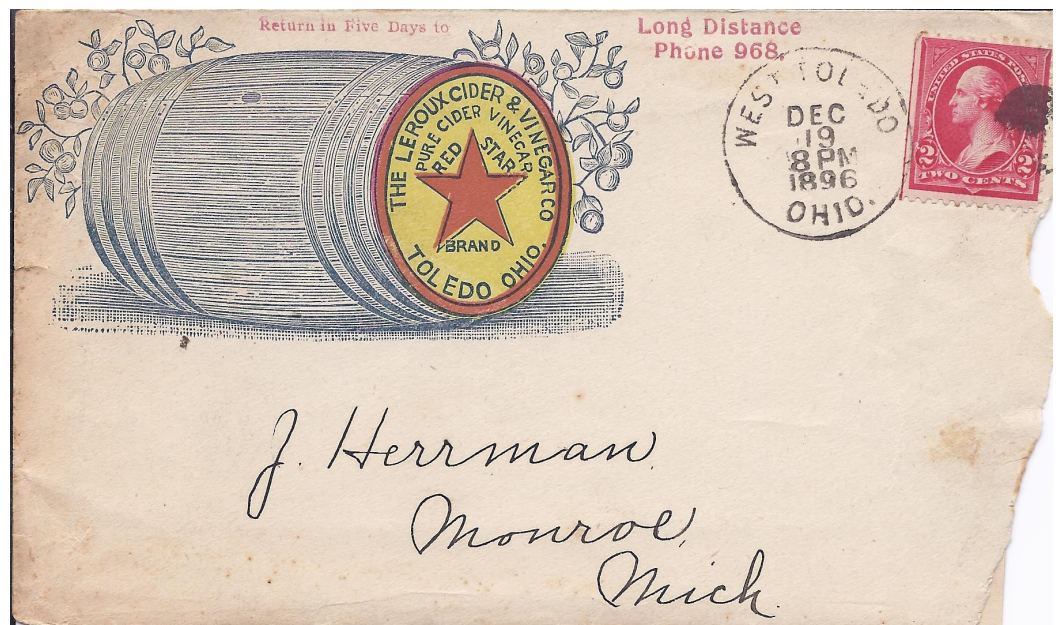 Return in Five Days to
Long Distance
Phone 968.
THE LEROUX CIDER & VINEGAR CO
PURE CIDER VINEGAR
RED STAR
BRAND
TOLEDO OHIO.
WEST TOLEDO
DEC
19
8 PM
1896
OHIO.
UNITED STATES POS
2 2
TWO CENTS
J. Herrman
Monroe,
Mich.